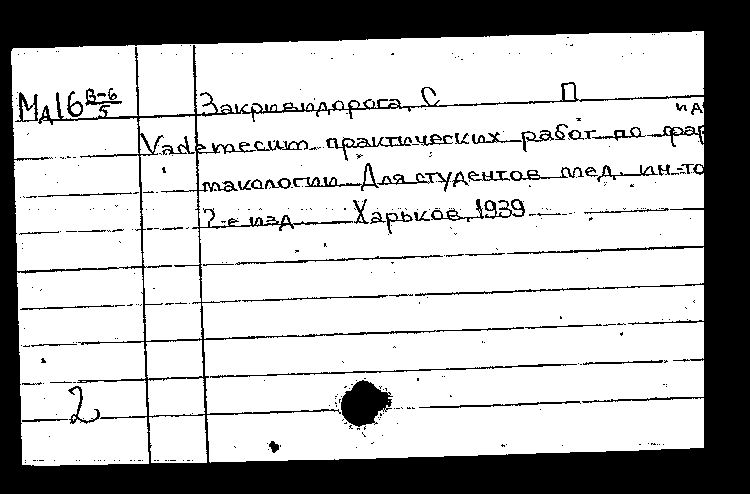 МД16 В-6/5
Закривидорога, С П
Vademecum практических работ по фар
макологии Для студентов мед. ин-то
2-е изд Харьков, 1939
2